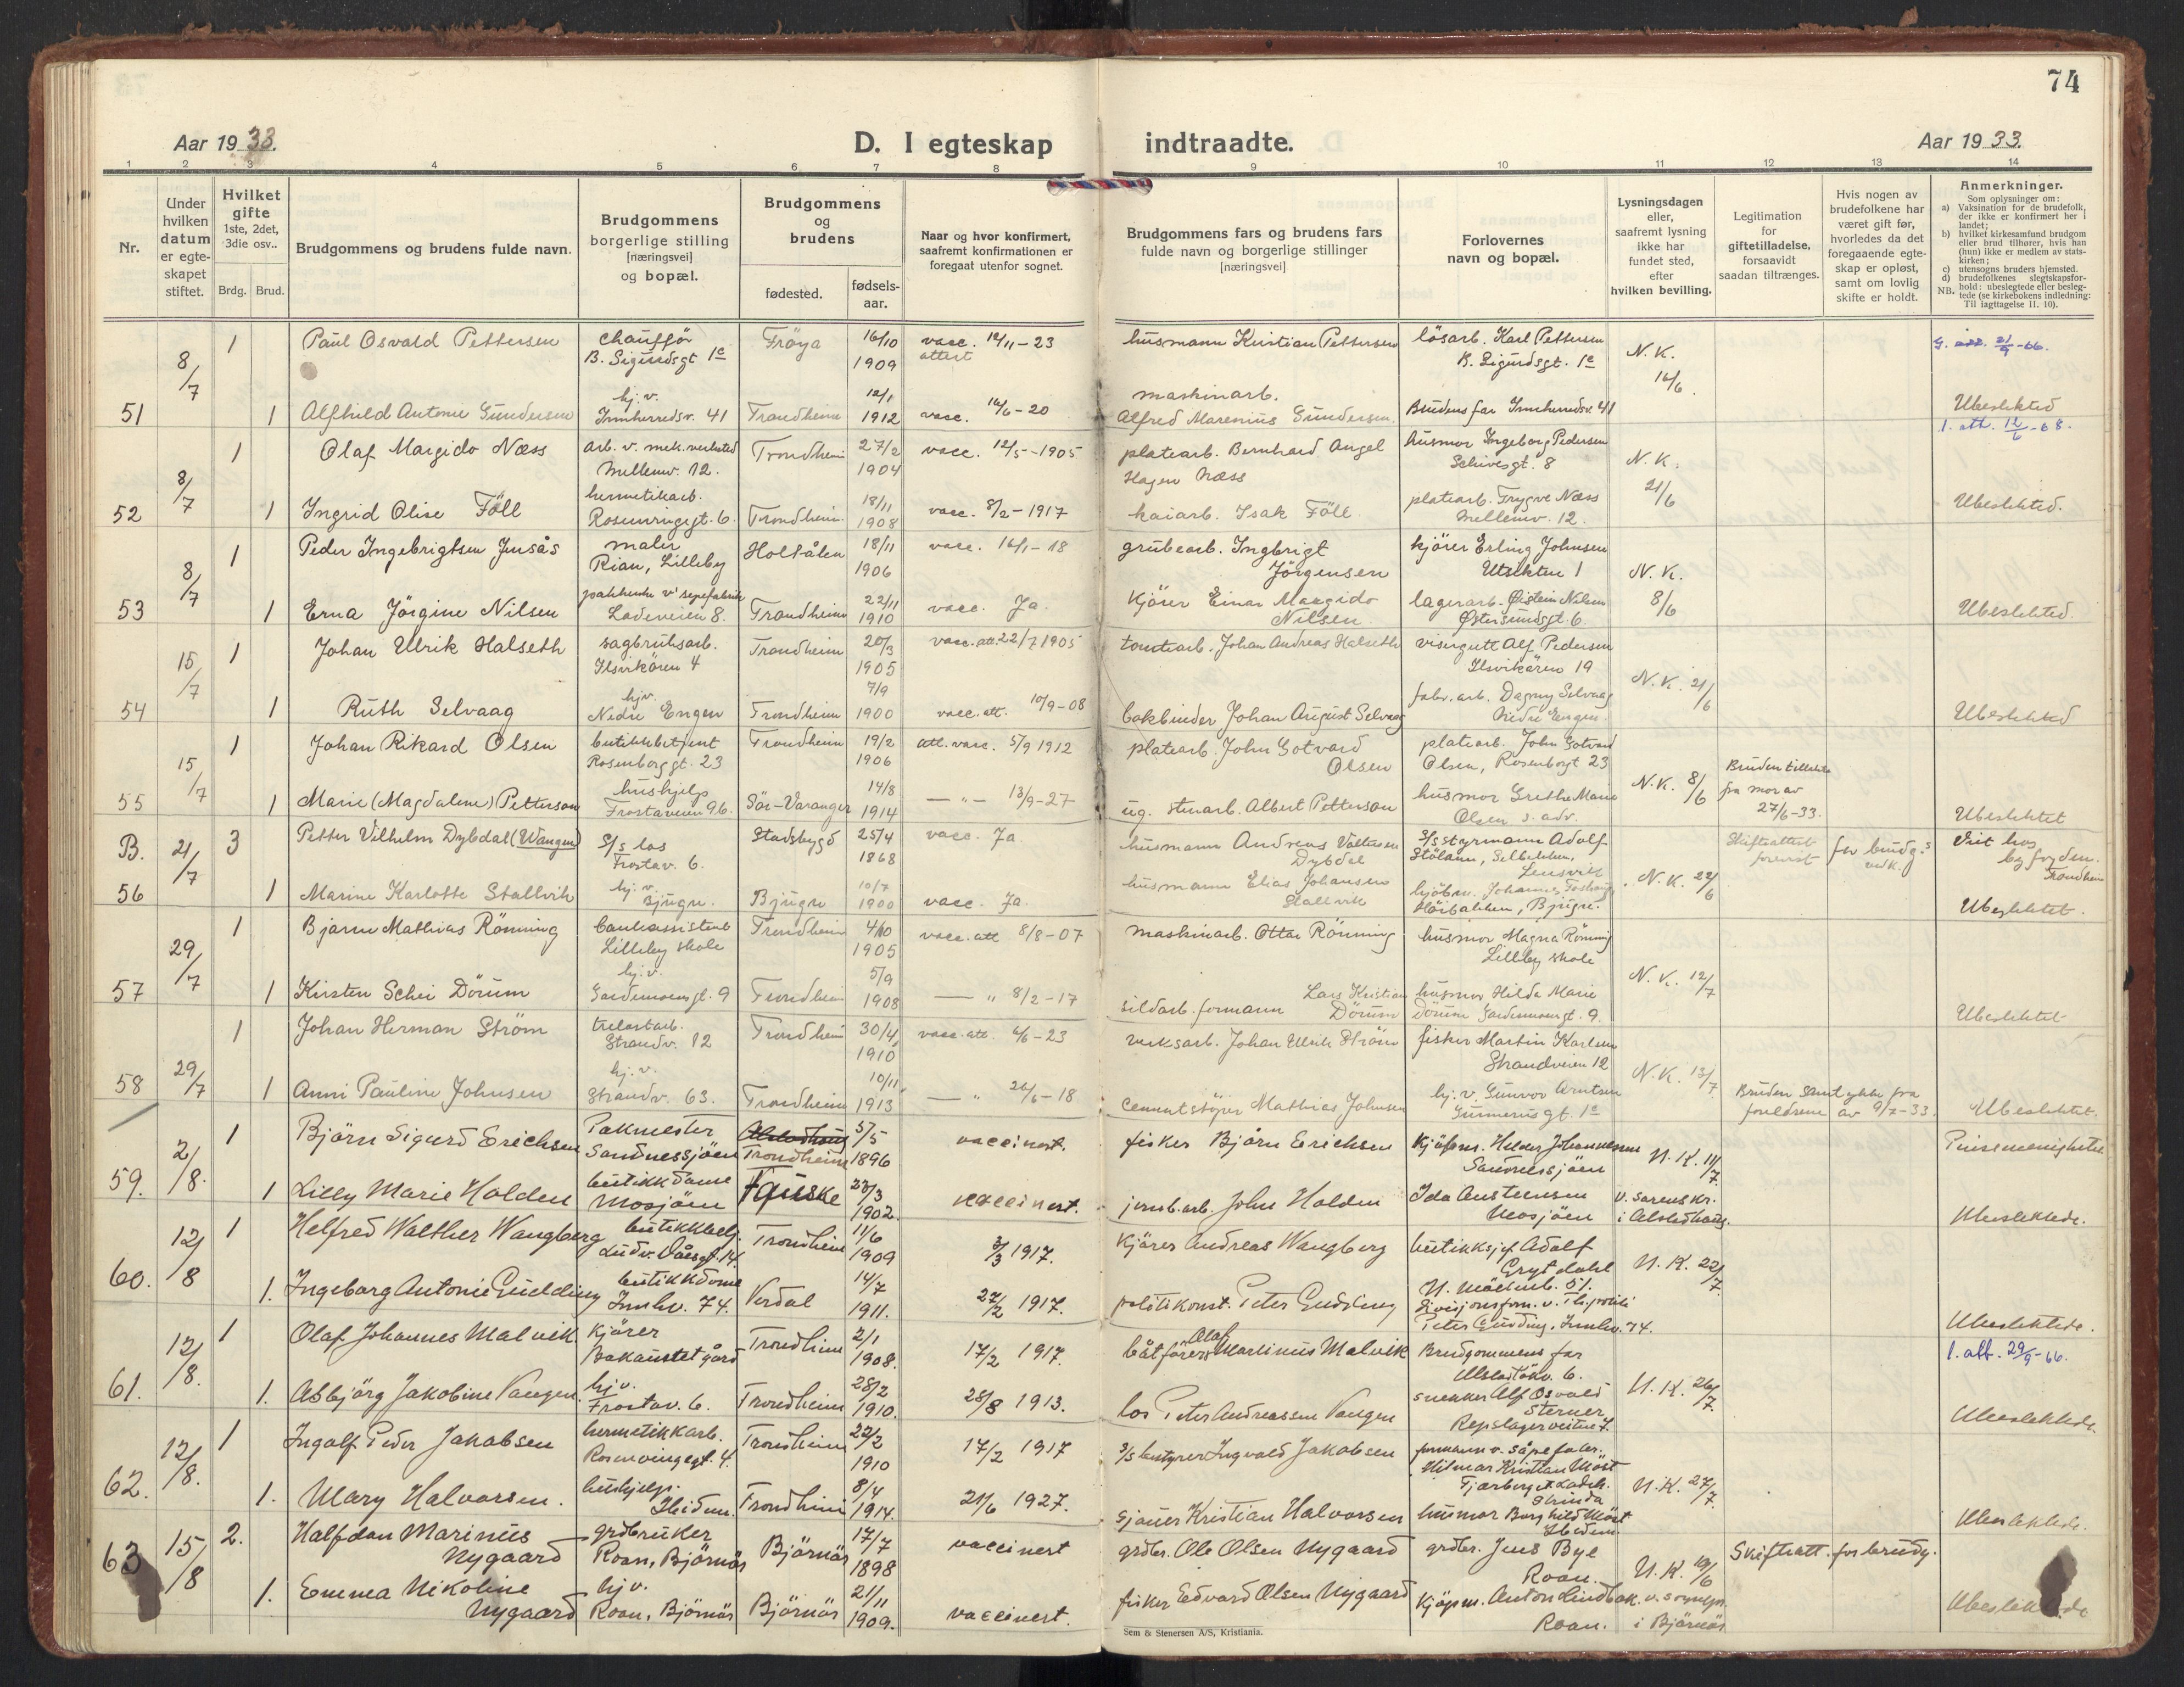 74
Aar 1933.
D. I egteskap indtraadte.
Aar 1933.
1 2 3 4 5 6 7 8 9 10 11 12 13 14
Nr.
Under hvilken datum er egteskapet stiftet.
Hvilket gifte 1ste, 2det, 3die osv..
Brdg. Brud.
Brudgommens og brudens fulde navn.
Brudgommens borgerlige stilling [næringsvei] og bopæl.
Brudgommens og brudens
fødested.
fødselsaar.
Naar og hvor konfirmert, saafremt konfirmationen er foregaat utenfor sognet.
Brudgommens fars og brudens fars fulde navn og borgerlige stillinger [næringsvei]
Forlovernes navn og bopæl.
Lysningsdagen eller, saafremt lysning ikke har fundet sted, efter hvilken bevilling.
Legitimation for giftetilladelse, forsaavidt saadan tiltrænges.
Hvis nogen av brudefolkene har været gift før, hvorledes da det foregaaende egteskap er opløst, samt om lovlig skifte er holdt.
Anmerkninger.
Som oplysninger om:
a) Vaksination for de brudefolk, der ikke er konfirmert her i landet;
b) hvilket kirkesamfund brudgom eller brud tilhører, hvis han (hun) ikke er medlem av statskirken;
c) utensogns bruders hjemsted.
d) brudefolkenes slegtskapsforhold: ubeslegtede eller beslegtede (se kirkebokens indledning: Til iagttagelse II. 10).
NB.
51 8/7 1 Paul Osvald Pettersen chauffør B. Sigurdsgt 1c Fröya 16/10 1909 vacc. attest 12/11-23 husmann Kristian Pettersen lösarb. Karl Pettersen B. Sigurdsgt. 1c N.K. 16/6
1 Alfhild Antonie Gundersen hj.v. Innherredsv. 41 Trondheim 12/1 1912 vacc. 16/6-20 maskinarb. Alfred Marenius Gundersen. Brudens far Innherredsv. 41 Ubeslekted
52 8/7 1 Olaf Margido Næss arb. v. mek. verksted Mellemv. 12. Trondheim 27/2 1904 vacc. 12/5-1905 platearb. Bernhard Angel Hagen Næss husmor Ingeborg Pedersen Schivesgt. 8 N.K. 21/6 1. att. 12/6-68.
1 Ingrid Olise Föll hermetikarb. Rosenvingegt. 6. Trondheim 18/11 1908 vacc. 8/2-1917 kaiarb. Isak Föll platearb. Trygve Næss Mellemv. 12. Ubeslekted.
53 8/7 1 Peder Ingebrigtsen Jensås maler Rian, Lilleby Holtålen 18/11 1906 vacc. 16/1-18 grubearb. Ingbrigt Jörgensen kjörer Erling Johnsen Utsikten 1 N.K. 8/6
1 Erna Jörgine Nilsen pakkerske v' sepefabrik Ladeveien 8. Trondheim 22/11 1910 vacc. Ja. Kjörer Einar Margido Nilsen lagerarb. Øistein Nilsen Østersundsgt. 6. Ubeslekted.
54 15/7 1 Johan Ulrik Halseth sagbruksarb. Ilsvikören 4 Trondheim 20/3 1905 vacc. att. 22/7 1905 tomtearb. Johan Andreas Halseth visergutt Alf Pedersen Ilsvikören 19 N.K. 21/6
1 Ruth Selvaag hjv. Nedre Engen Trondheim 7/9 1900 vacc. att. 10/9-08 bokbinder Johan August Selvaag fabr. arb. Dagny Selvaag Nedre Engen. Ubeslekted
55 15/7 1 Johan Rikard Olsen butikkbetjent Rosenborggt. 23 Trondheim 19/2 1906 att. vacc. 5/9 1912 platearb. John Gotvard Olsen platearb. John Gotvard Olsen, Rosenborgt 23 N.K. 8/6 27/6-33.
1 Marie (Magdalene) Petterson hushjelp Frostaveien 96. Sör-Varanger 14/8 1914 — " — 13/9-27 ug. stuearb. Albert Petterson husmor Grethe Marie Olsen s. adr. Ubeslektet
B. 56 21/7 3 Petter Vilhelm Dybdal (Wangen) S/s los Frostav. 6. Stadsbygd 25/4 1868 vacc. Ja husmann Andreas Valtersen Dybdal S/s styrmann Adolf Stölann, Selbekken, Lensvik N.K. 22/6 Skifteattest forevist for brudg.s vedk. Viet hos byfogden. Trondheim
1 Marine Karlotte Stallvik hj.v. Bjugn. Bjugn 10/7 1900 vacc. Ja. husmann Elias Johansen Stallvik kjöbm. Johannes Höibakken, Bjugn. Ubeslektet.
57 29/7 1 Bjarne Mathias Rönning bankassistent Lilleby skole Trondheim 4/10 1905 vacc. att 8/8-07 maskinarb. Ottar Rönning husmor Magna Rönning Lilleby skole N.K. 12/7
1 Kirsten Schei Dörum hj.v. Gardemoensgt. 9 Trondheim 5/9 1908 — " 8/2-17 sildarb. formann Lars Kristian Dörum husmor Hilda Marie Dörum Gardemoensgt. 9. Ubeslektet
58 29/7 1 Johan Herman Ström trelastarb. Strandv. 12 Trondheim 30/4 1910 vacc. att. 6/6-23 verksarb. Johan Ulrik Ström fisker Martin Karlsen Strandveien 12 N.K. 13/7
1 Anni Pauline Johnsen hj.v. Strandv. 63. Trondheim 10/11 1913 — " 26/6-18 cementstöper Mathias Johnsen hj.v. Gunvor Arntsen Gunnerusgt. 1c Bruden samtykke fra foreldrene av 9/7-33. Ubeslektet.
59. 2/8. 1 Björn Sigurd Erichsen Pakmester Sandnessjöen Trondheim 5/5 1896 vaccinert. fisker Björn Erichsen Kjöpm. Helmer Johannessen Sandnessjöen N.K. 11/7. Pinsemenigheten
1 Lilly Marie Holden butikkdame Mosjöen Fauske 23/3 1902. vaccinert. jernb.arb. John Holden Ida Austensen Mosjöen v. sorenskr. i Alstedhaug. Ubeslektede.
60. 12/8 1 Helfred Walther Wangberg butikkbetj. Ludv. Daaesgt. 14. Trondheim 11/6 1909 3/3 1917. Kjörer Andreas Wangberg butikksjef Adolf Grytdahl N. Möllenb. 51. N.K. 22/7.
1. Ingeborg Antonie Gudding butikkdame Innhv. 74. Verdal 14/7 1911. 27/2 1917. politikonst. Peter Gudding divisjonsform. v. Tr.politi Peter Gudding, Innhv. 74. Ubeslektede.
61. 12/8. 1 Olaf Johannes Malvik kjörer Bakaunet gård Trondheim 2/1 1908. 17/2 1917. båtförer Olaf Martinius Malvik Brudgommens far Ulstadlökv. 6. N.K. 26/7. 1. att. 29/9-66.
1. Asbjörg Jakobine Vangen. hj.v. Frostav. 6. Trondheim 28/2 1910. 28/8 1913. los Peter Andreassen Vangen snekker Alf Osvald Sterner Repslagerveiten 7. Ubeslektede.
62. 12/8. 1 Ingolf Peder Jakobsen hermetikkarb. Rosenvingegt. 4. Trondheim 22/2 1910 17/2 1917 S/s bestyrer Ingvald Jakobsen formann v. såpefabr. Hilmar Kristian Möst Fjærberget Ladeh. Strinda N.K. 27/7.
1. Mary Halvorsen. hushjelp. Trondheim 8/4 1914. 21/6 1927. sjauer Kristian Halvorsen husmor Borghild Möst Ubeslektede.
63 15/8 2. Halfdan Marinius Nygaard grdbruker Roan, Björnör Björnör 17/7 1898 vaccinert grdbr. Ole Olsen Nygaard grdbr. Jens Bye Roan. N.K. 19/6 Skifteatt. for brudg.
1. Emma Nikoline Nygaard hjv. Roan, Björnör Björnör 21/11 1909. vaccinert. fisker Edvard Olsen Nygaard Kjöpm. Anton Lindbak. Roan. i Björnör Ubeslektede
Sem & Stenersen A/S, Kristiania.